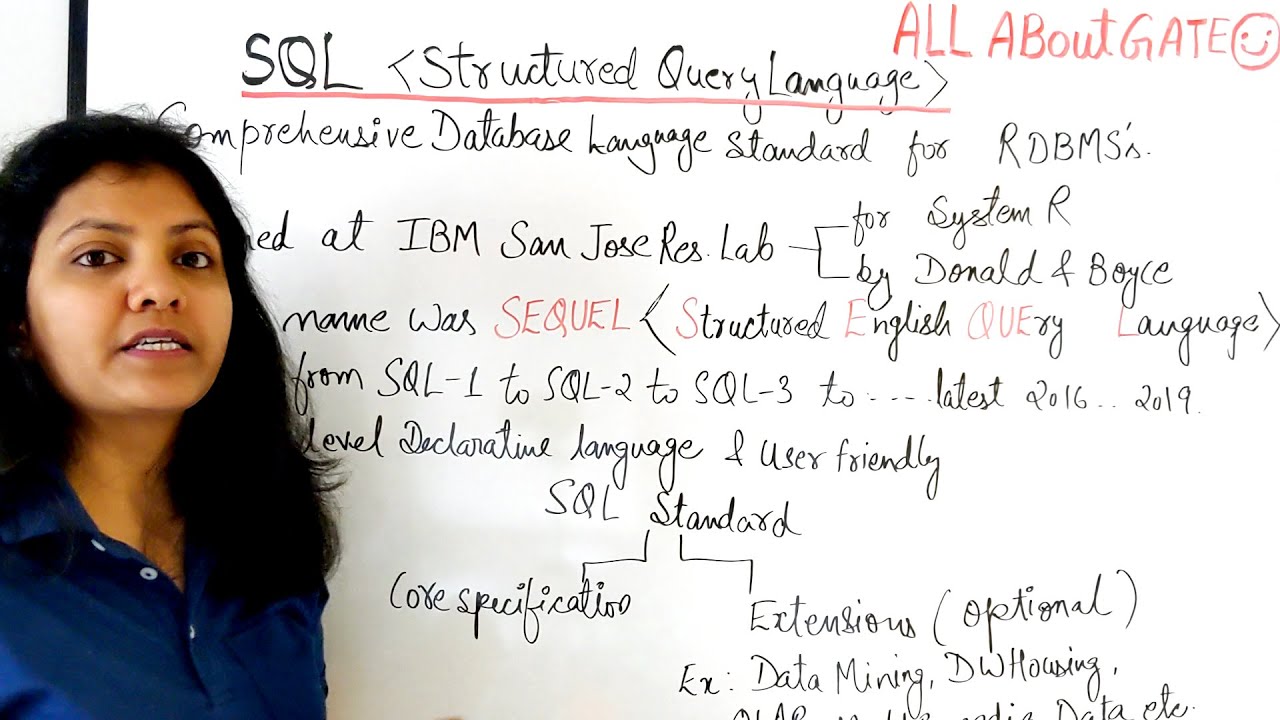 ALL ABout GATE
SQL <Structured Query Language>
Comprehensive Database Language Standard for RDBMS's.
at IBM San Jose Res. Lab
for System R
by Donald & Boyce
name was SEQUEL <Structured English QUEry Language>
from SQL-1 to SQL-2 to SQL-3 to ---- latest 2016 .. 2019.
level Declarative language & User friendly
SQL Standard
Core specification
Extensions (optional)
Ex: Data Mining, DWHousing,
Data etc.